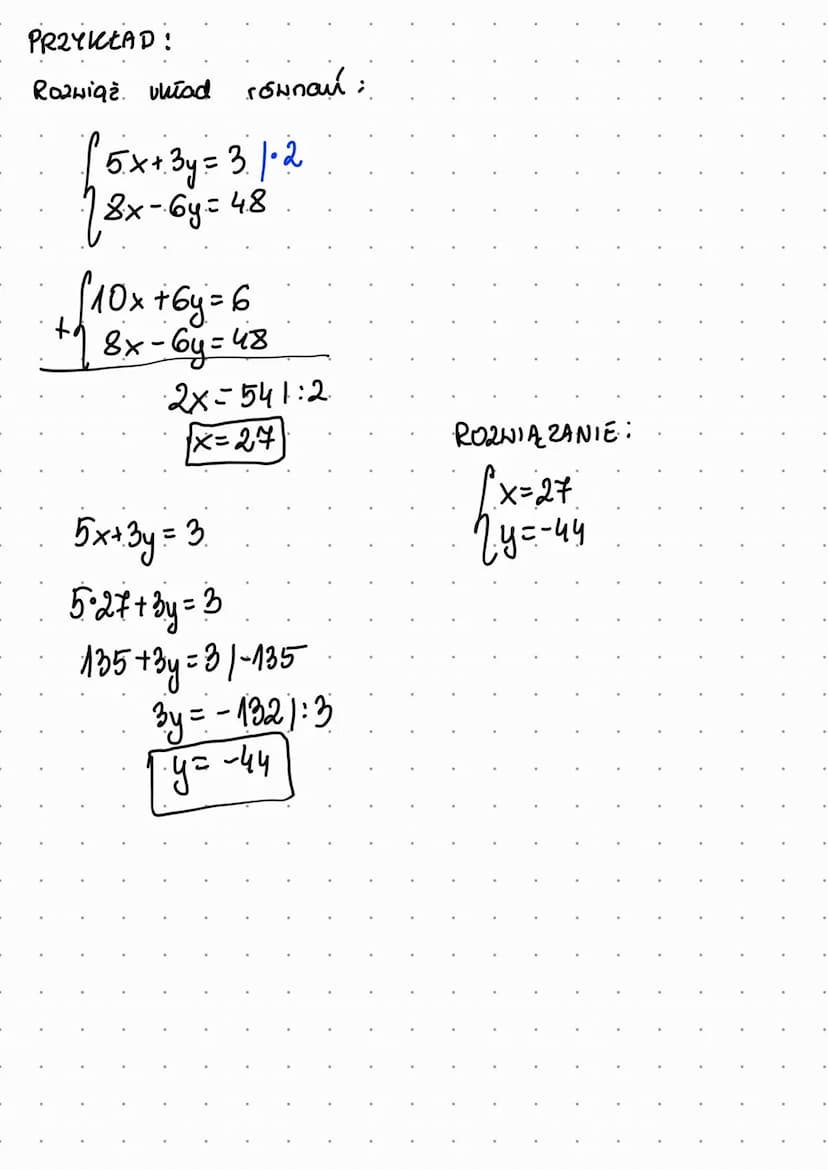 PRZYKŁAD:
Rozwiąż układ równań:
5x+3y=3 |·2
8x-6y=48
10x+6y=6
+
8x-6y=48
2x=54 |:2
x=27
5x+3y=3
5·27+3y=3
135+3y=3 |-135
3y=-132 |:3
y=-44
ROZWIĄZANIE:
x=27
y=-44